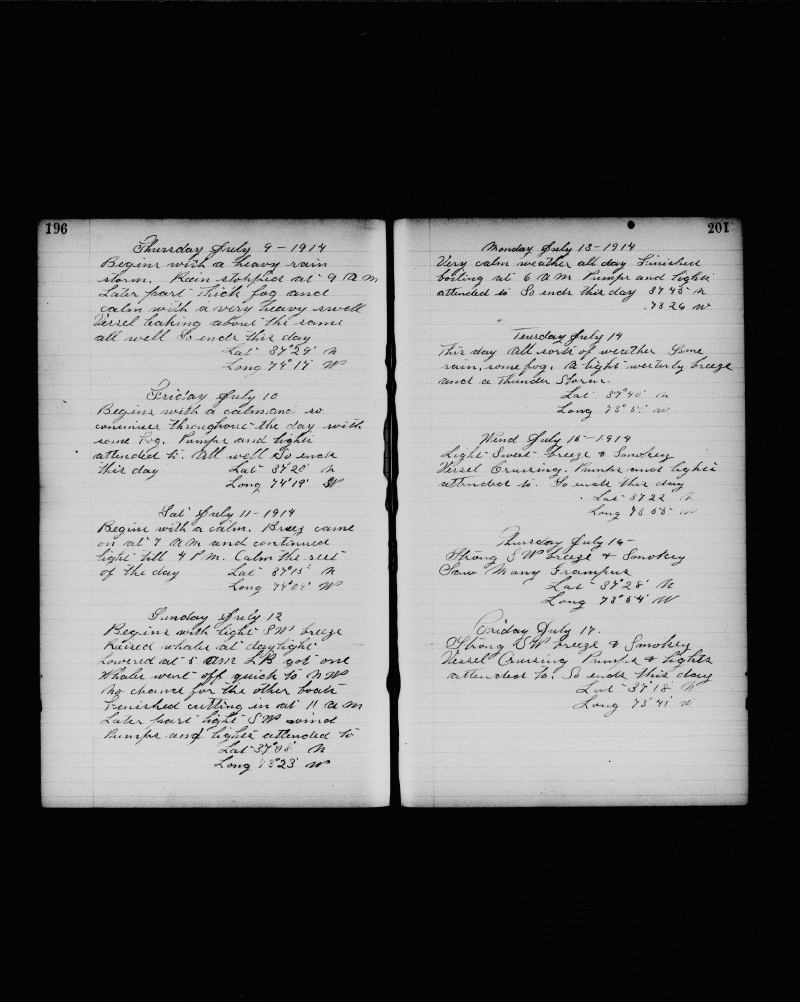 196
Thursday July 9 - 1914
Begins with a heavy rain
storm. Rain stopped at 9 A M
Later part thick fog and
calm with a very heavy swell
Vessel leaking about the same
all well So ends this day
Lat 37°29' N
Long 74°17' W
Friday July 10
Begins with a calm and so
continues throughout the day with
some Fog. Pumps and lights
attended to. All well So ends
this day Lat 37°20' N
Long 74°19' W
Sat July 11 - 1914
Begins with a calm. Breez came
on at 7 A M and continued
light till 4 P M. Calm the rest
of the day Lat 37°15' N
Long 74°04' W
Sunday July 12
Begins with light SW breeze
Raised whales at daylight
Lowered at 5 AM LB got one
Whales went off quick to NW
No chance for the other boats
Finished cutting in at 11 A M
Later part light SW wind
Pumps and lights attended to
Lat 37°08' N
Long 73°23' W
201
Monday July 13 - 1914
Very calm weather all day Finished
boiling at 6 A M Pumps and lights
attended to So ends this day 37 45 N
73 26 W
Teusday July 14
This day All sorts of weather Some
rain, some fog. A light westerly breeze
and a Thunder Storm.
Lat 37°40' N
Long 73° W
Wind July 15 - 1914
Light Swest breeze & Smokey
Vessel Cruising. Pumps and lights
attended to. So ends this day
Lat 37 22 N
Long 73 55 W
Thursday July 16 -
Strong SW breeze & Smokey
Saw Many Grampus
Lat 37°28' N
Long 73°54' W
Friday July 17.
Strong SW breeze & Smokey
Vessel Cruising Pumps & lights
attended to. So ends this day
Lat 37°18' N
Long 73°41' W